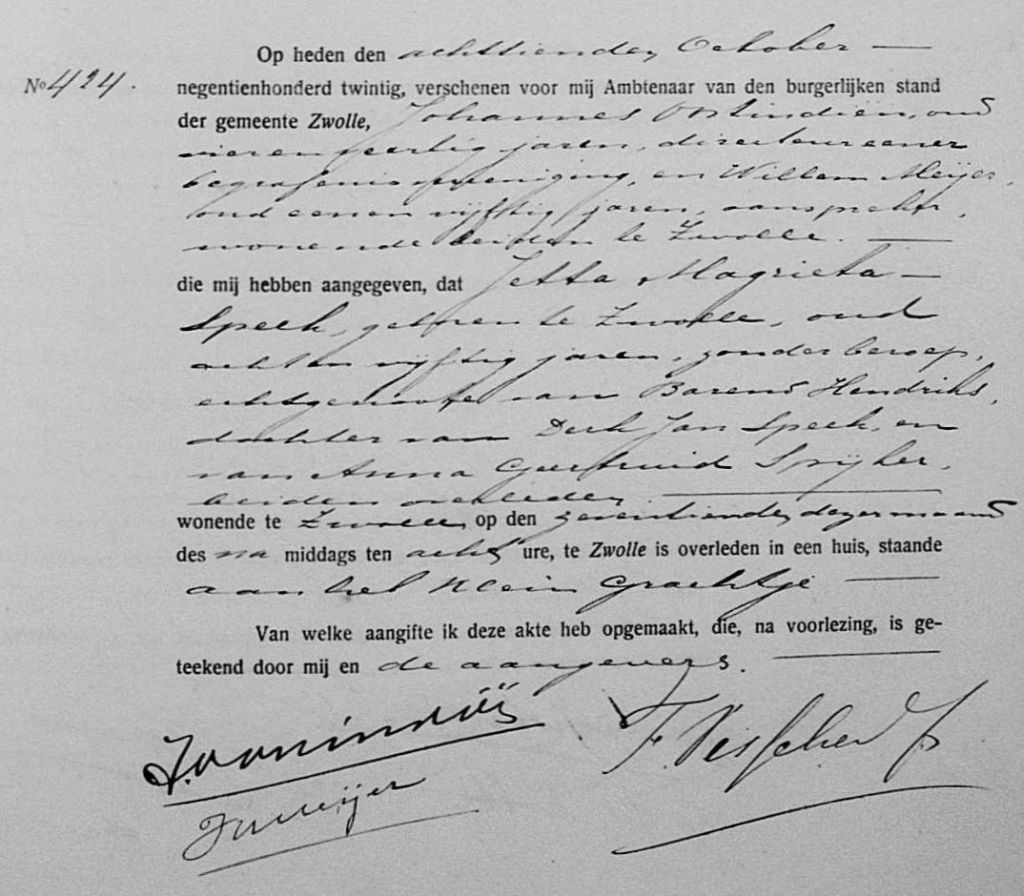 Op heden den achttienden October
No 424. negentienhonderd twintig, verschenen voor mij Ambtenaar van den burgerlijken stand
der gemeente Zwolle, Johannes Oostindiën, oud
vierenveertig jaren, directeur eener
begrafenisvereeniging, en Willem Meijer,
oud eenenvijftig jaren, aanspreker,
wonende beiden te Zwolle.
die mij hebben aangegeven, dat Jetta Magrieta
Speek, geboren te Zwolle, oud
achtenvijftig jaren, zonder beroep,
echtgenoote van Barend Hendriks,
dochter van Derk Jan Speek, en
van Anna Geertruid Spijker,
beiden overleden
wonende te Zwolle, op den zeventienden dezer maand
des na middags ten acht ure, te Zwolle is overleden in een huis, staande
aan het Klein Grachtje
Van welke aangifte ik deze akte heb opgemaakt, die, na voorlezing, is ge-
teekend door mij en de aangevers.
F. Visscher
Meijer